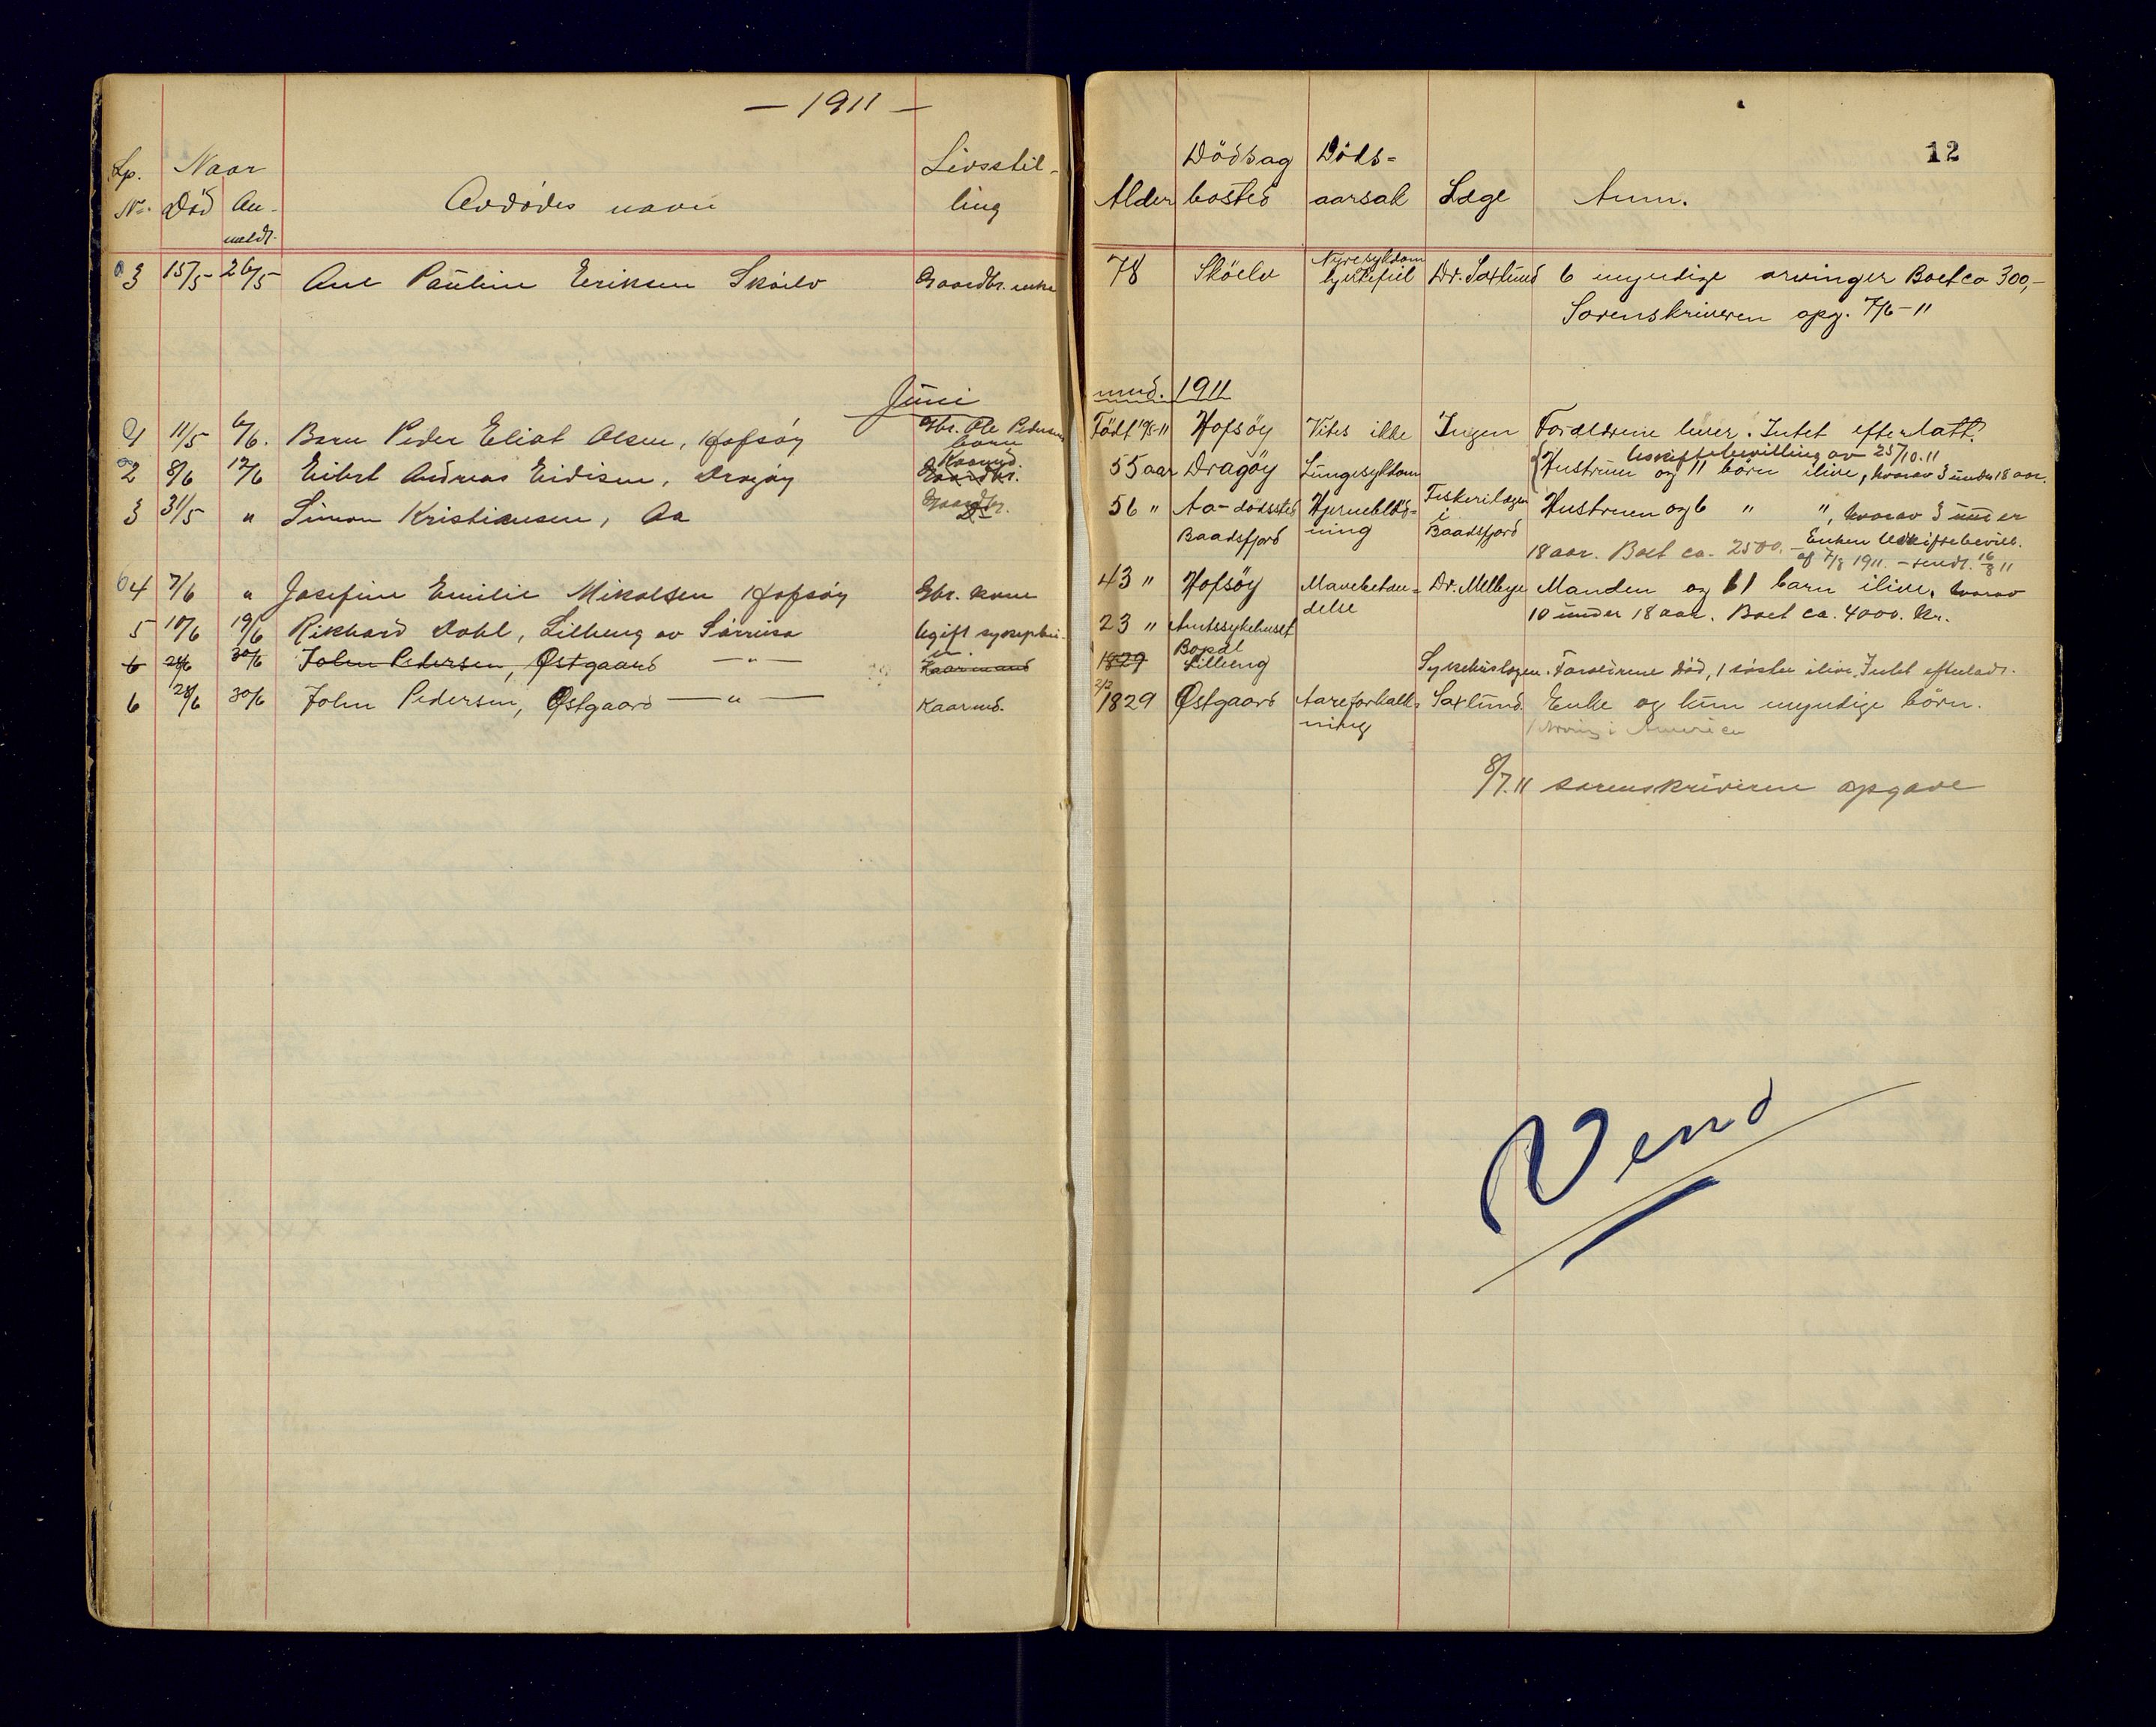 — 1911 —
Lp. Nr. Naar Död An- meldt. Avdødes navn Livsstil- ling
3 15/5 26/5 Ane Pauline Eriksen Skøelv Gaardbr. enke
Juni
1 11/5 6/6. Barn Peder Eliot Olsen, Hofsøy Gbr. Ole Pedersens barn
2 8/6 12/6 Eibert Andreas Eidisen, Dragøy Kaarmd. Gaardbr.
3 31/5 " Simon Kristiansen, Aa Gaardbr.
4 7/6 " Josefine Emilie Mikalsen Hofsøy Gbr. kone
5 10/6 19/6 Rikhard Dahl, Lilleng av Sørreisa Ugift
6 28/6 30/6 John Pedersen, Østgaard — " — Kaarmand
6 28/6 30/6 John Pedersen, Østgaard — " — Kaarmd.
12
Alder Dödsag bosted Döds= aarsak Læge Anm.
78 Sköelv Nyresykdom hjertefeil Dr. Saxlund 6 myndige arvinger Boet ca 300,-
Sorenskriveren opg. 7/6-11
mnd. 1911
Födt Hofsöy Vites ikke Ingen Forældrene lever. Intet efterlatt.
Uskiftebevilling av 25/10.11
55 aar Dragöy Lungesykdom Hustruen og 11 børn ilive, hvorav 3 under 18 aar.
56 " Aa - dödssted Baadsfjord Hjerneblöd= ning Fiskerilægen i Baadsfjord Hustruen og 6 " ", hvorav 3 under
18 aar. Boet ca. 2500.- Enken Uskiftebevill. af 7/8 1911. - sendt. 16/8 11
43 " Hofsöy Mavebetæn= delse Dr. Melbye Manden og 11 barn ilive, hvorav
10 under 18 aar. Boet ca. 4000. kr.
23 " Amtssykehuset Bopæl Lilleng
1829 Sykehuslægen. Forældrene död, 1 söster ilive. Intet efterladt.
1829 Østgaard Aareforkalk= ning Saxlund Enke og kun myndige børn.
1 Arving i America
8/7.11 sorenskriveren opgave
Vend